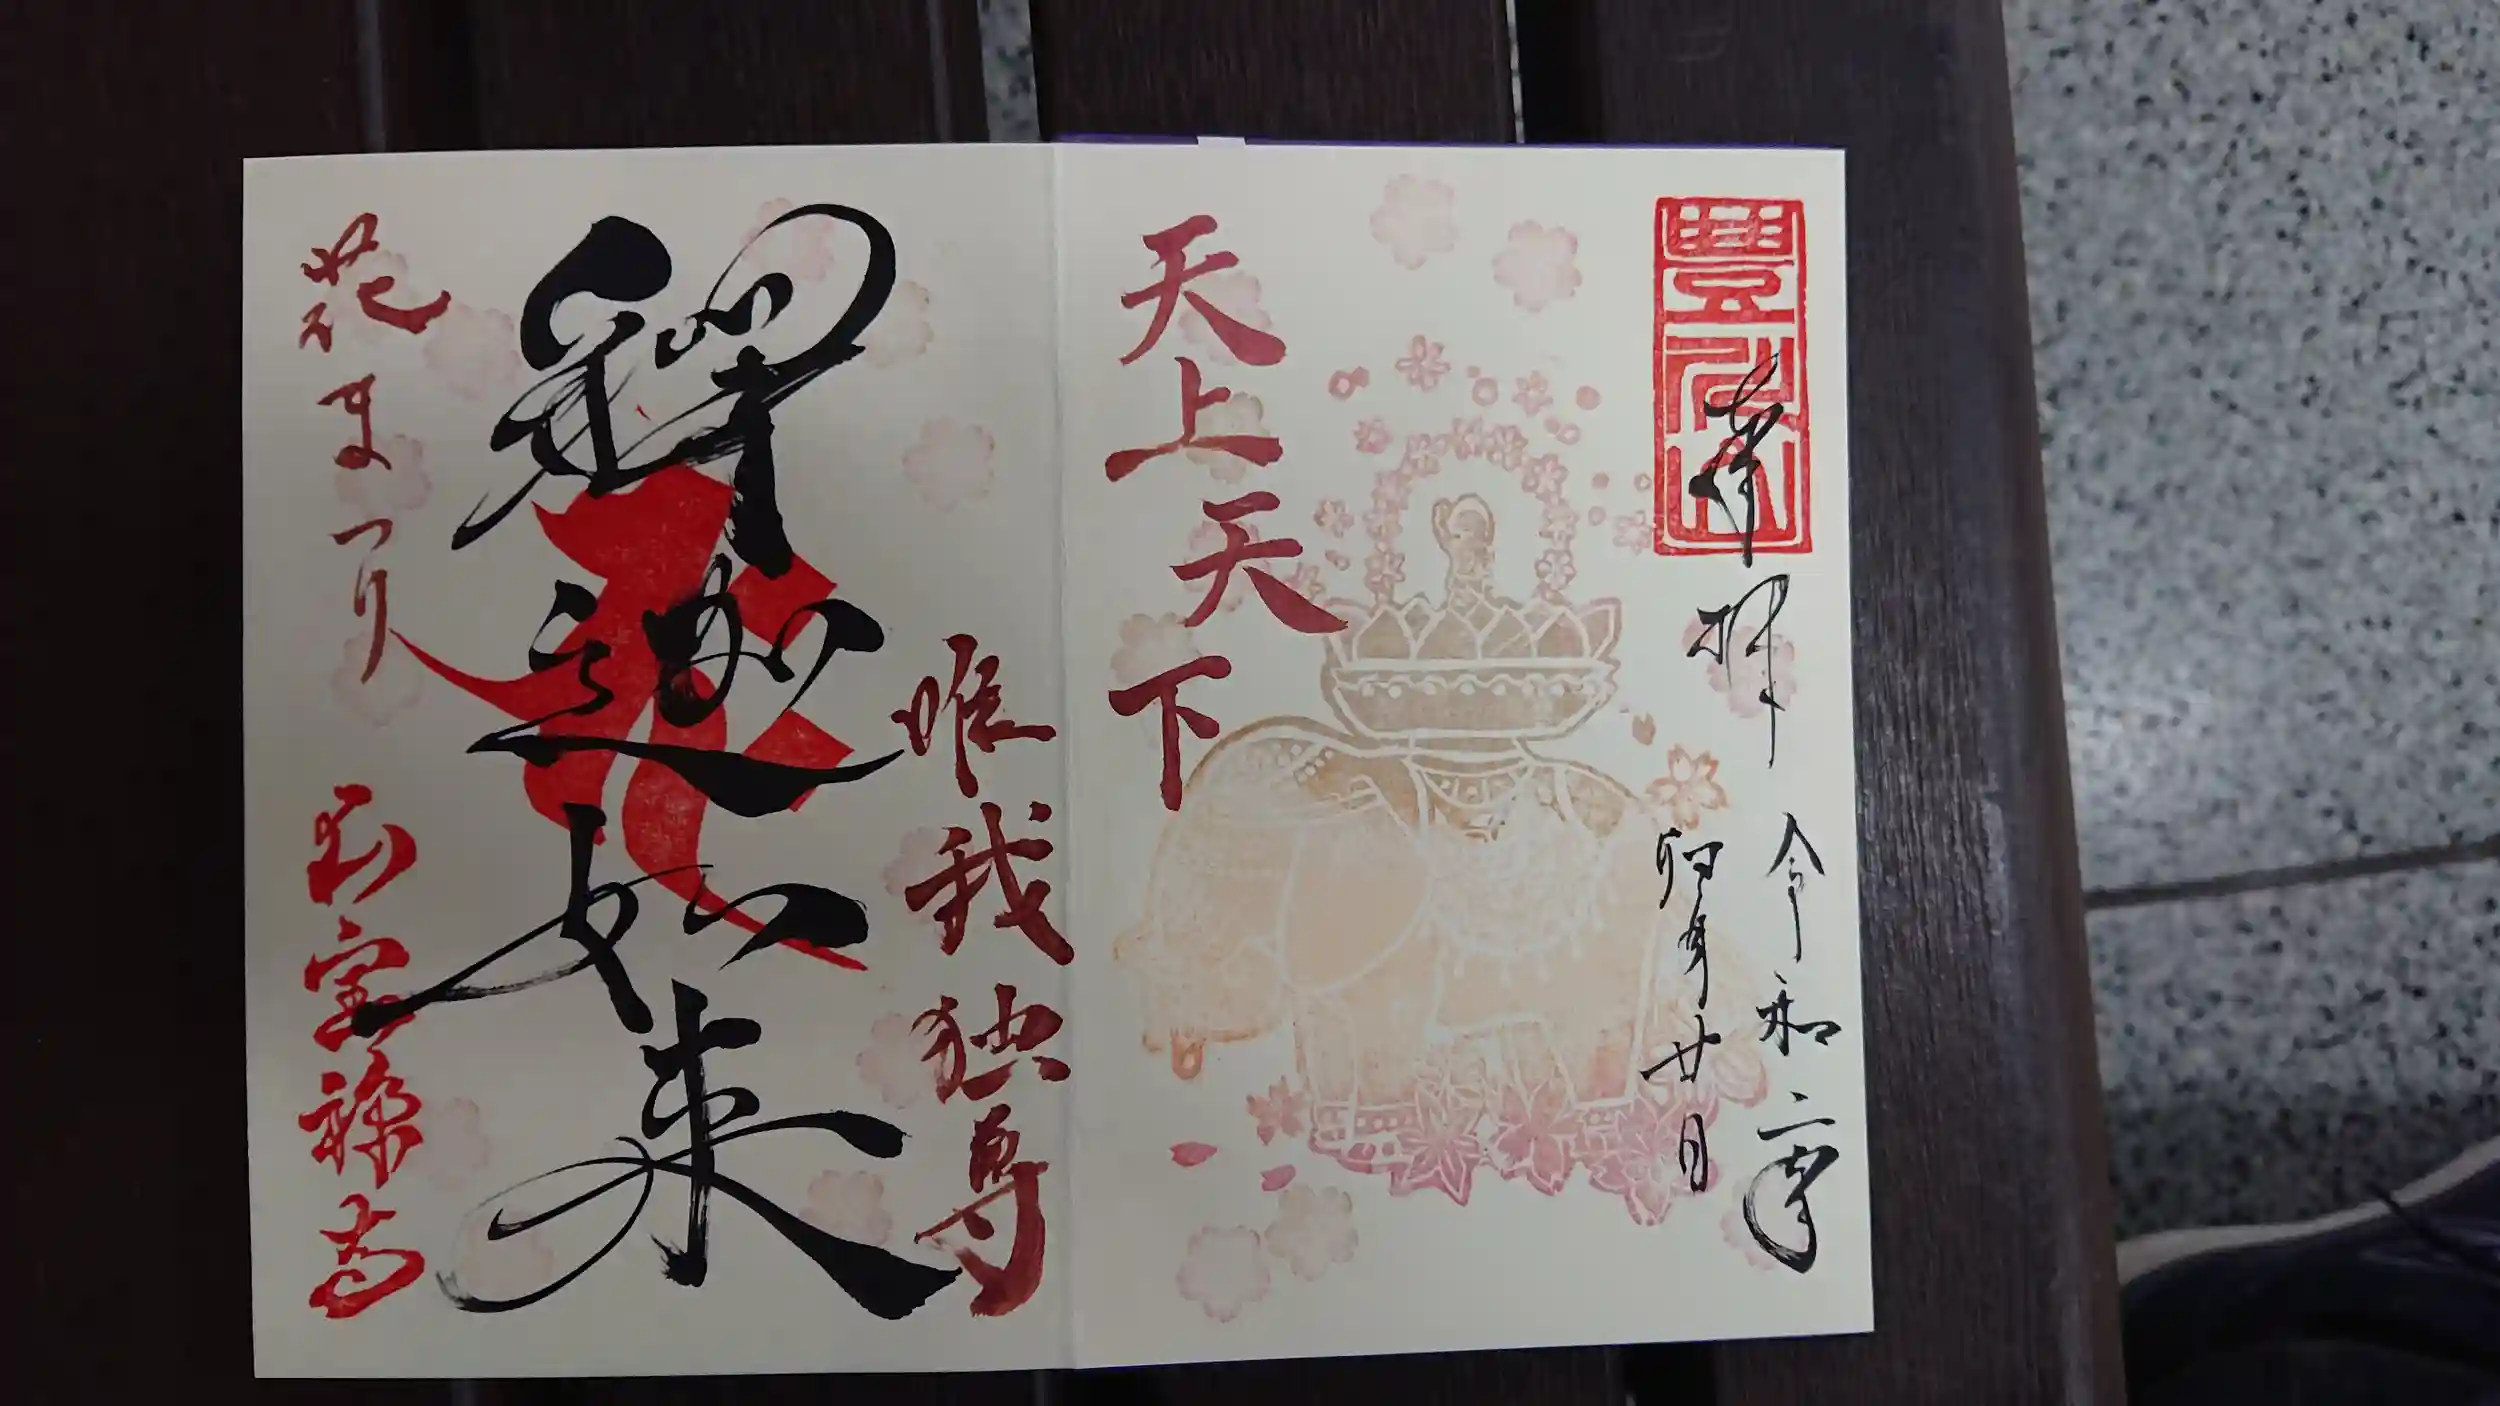 豐川山
奉拝
令和二年
卯月廿日
天上天下
唯我独尊
釋迦如来
花まつり